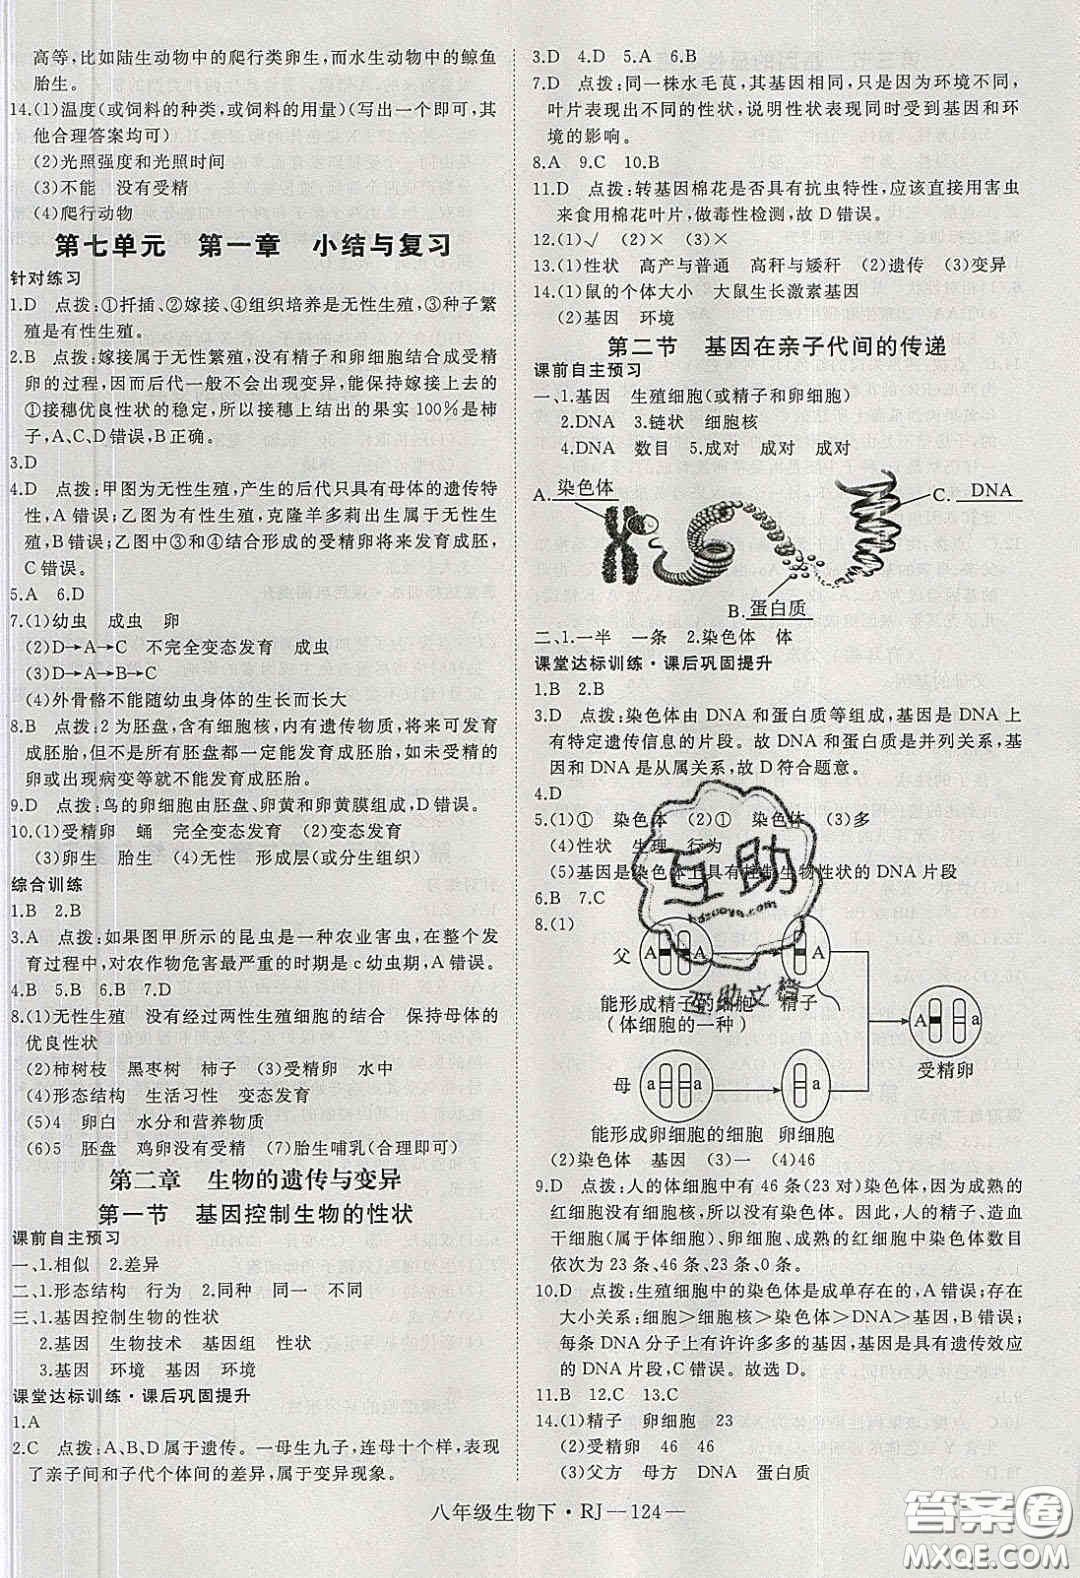 高等,比如陆生动物中的爬行类卵生,而水生动物中的鲸鱼
胎生。
14.(1)温度(或饲料的种类,或饲料的用量)(写出一个即可,其
他合理答案均可)
(2)光照强度和光照时间
(3)不能 没有受精
(4)爬行动物
第七单元 第一章 小结与复习
针对练习
1.D 点拨:①扦插、②嫁接、④组织培养是无性生殖,③种子繁
殖是有性生殖。
2.B 点拨:嫁接属于无性繁殖,没有精子和卵细胞结合成受精
卵的过程,因而后代一般不会出现变异,能保持嫁接上去的
①接穗优良性状的稳定,所以接穗上结出的果实100%是柿
子,A、C、D错误,B正确。
3.D
4.D 点拨:甲图为无性生殖,产生的后代只具有母体的遗传特
性,A错误;乙图为有性生殖,克隆羊多莉出生属于无性生
殖,B错误;乙图中③和④结合形成的受精卵将来发育成胚,
C错误。
5.A 6.D
7.(1)幼虫 成虫 卵
(2)D→A→C 不完全变态发育 成虫
(3)D→A→B→C
(4)外骨骼不能随幼虫身体的生长而长大
8.B 点拨:2为胚盘,含有细胞核,内有遗传物质,将来可发育
成胚胎,但不是所有胚盘都一定能发育成胚胎,如未受精的
卵或出现病变等就不能发育成胚胎。
9.D 点拨:鸟的卵细胞由胚盘、卵黄和卵黄膜构成,D错误。
10.(1)受精卵 蛹 完全变态发育 (2)变态发育
(3)卵生 胎生 (4)无性 形成层(或分生组织)
综合训练
1.B 2.B
3.A 点拨:如果图甲所示的昆虫是一种农业害虫,在整个发
育过程中,对农作物危害最严重的时期是c幼虫期,A错误。
4.B 5.B 6.B 7.D
8.(1)无性生殖 没有经过两性生殖细胞的结合 保持母体的
优良性状
(2)柿树枝 黑枣树 柿子 (3)受精卵 水中
(4)形态结构 生活习性 变态发育
(5)4 卵白 水分和营养物质
(6)5 胚盘 鸡卵没有受精 (7)胎生哺乳(合理即可)
第二章 生物的遗传与变异
第一节 基因控制生物的性状
课前自主预习
一、1.相似 2.差异
二、1.形态结构 行为 2.同种 同一 不同
三、1.基因控制生物的性状
2.基因 生物技术 基因组 性状
3.基因 环境 基因 环境
课堂达标训练·课后巩固提升
1.A
2.C 点拨:A、B、D属于遗传。一母生九子,连母十个样,表现
了亲子间和子代个体间的差异,属于变异现象。
3.D 4.D 5.A 6.B
7.D 点拨:同一株水毛茛,其基因相同,只是因为环境不同,
叶片表现出不同的性状,说明性状表现同时受到基因和环
境的影响。
8.A 9.C 10.B
11.D 点拨:转基因棉花是否具有抗虫特性,应该直接用害虫
来食用棉花叶片,做毒性检测,故D错误。
12.(1)√ (2)× (3)×
13.(1)性状 高产与普通 高秆与矮秆 (2)遗传 (3)变异
14.(1)鼠的个体大小 大鼠生长激素基因
(2)基因 环境
第二节 基因在亲子代间的传递
课前自主预习
一、1.基因 生殖细胞(或精子和卵细胞)
2.DNA 3.链状 细胞核
4.DNA 数目 5.成对 成对 成对
A.染色体
C.DNA
B.蛋白质
二、1.一半 一条 2.染色体 体
课堂达标训练·课后巩固提升
1.B 2.B
3.D 点拨:染色体由DNA和蛋白质等组成,基因是DNA上
有特定遗传信息的片段。故DNA和蛋白质是并列关系,基
因和DNA是从属关系,故D符合题意。
4.D
5.(1)① 染色体 (2)① 染色体 (3)多
(4)性状 生理 行为
(5)基因是染色体上具有控制生物性状的DNA片段
6.B 7.C
8.(1)
父 A A A
能形成精子的细胞 精子
(体细胞的一种)
A a
受精卵
母 a a a
能形成卵细胞的细胞 卵细胞
(2)染色体 基因 (3)一 (4)46
9.D 点拨:人的体细胞中有46条(23对)染色体,因为成熟的
红细胞没有细胞核,所以没有染色体。因此,人的精子、造血
干细胞(属于体细胞)、卵细胞、成熟的红细胞中染色体数目
依次为23条、46条、23条、0条。
10.D 点拨:生殖细胞中的染色体是成单存在的,A错误;存在
大小关系:细胞>细胞核>染色体>DNA>基因,B错误;
每条DNA分子上有许许多多的基因,基因是具有遗传效应
的DNA片段,C错误。故选D。
11.B 12.C 13.C
14.(1)精子 卵细胞 23
(2)受精卵 46 46
(3)父方 母方 DNA 蛋白质
八年级生物下·RJ—124—
互助
hdzuoye.com
互助文档
答案圈
MXQE.COM